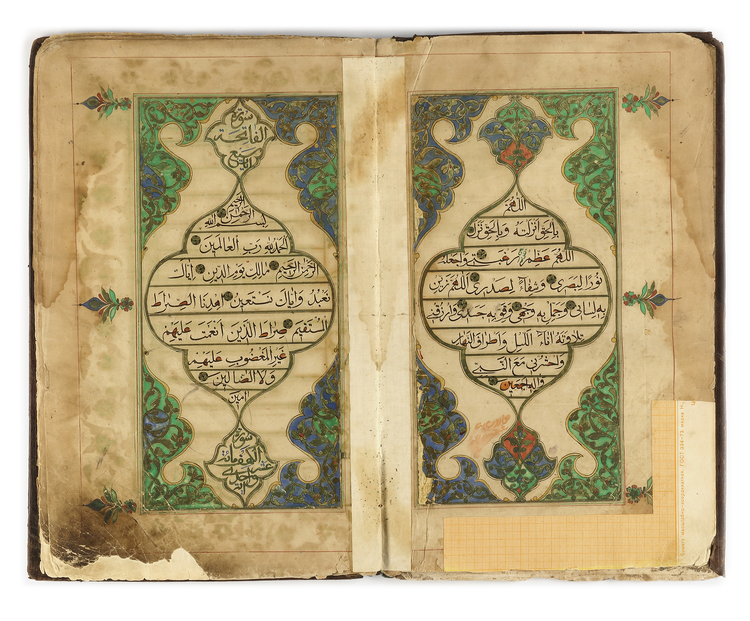 اللهم
بالحق انزلته وبالحق نزل
اللهم عظم رغبتي واجعله
نورا لبصري وشفاء لصدري اللهم زين
به لساني وجمل به وجهي وقو به جسدي وارزقني
تلاوته اناء الليل واطراف النهار
واحشرني مع النبي
واله اجمعين
سورة
الفاتحة
سبع
بسم الله الرحمن الرحيم
الحمد لله رب العالمين
الرحمن الرحيم مالك يوم الدين اياك
نعبد واياك نستعين اهدنا الصراط
المستقيم صراط الذين انعمت عليهم
غير المغضوب عليهم
ولا الضالين
امين
سورة
الكهف مائة
عشر
اية
ГОСТ 334—73 марка